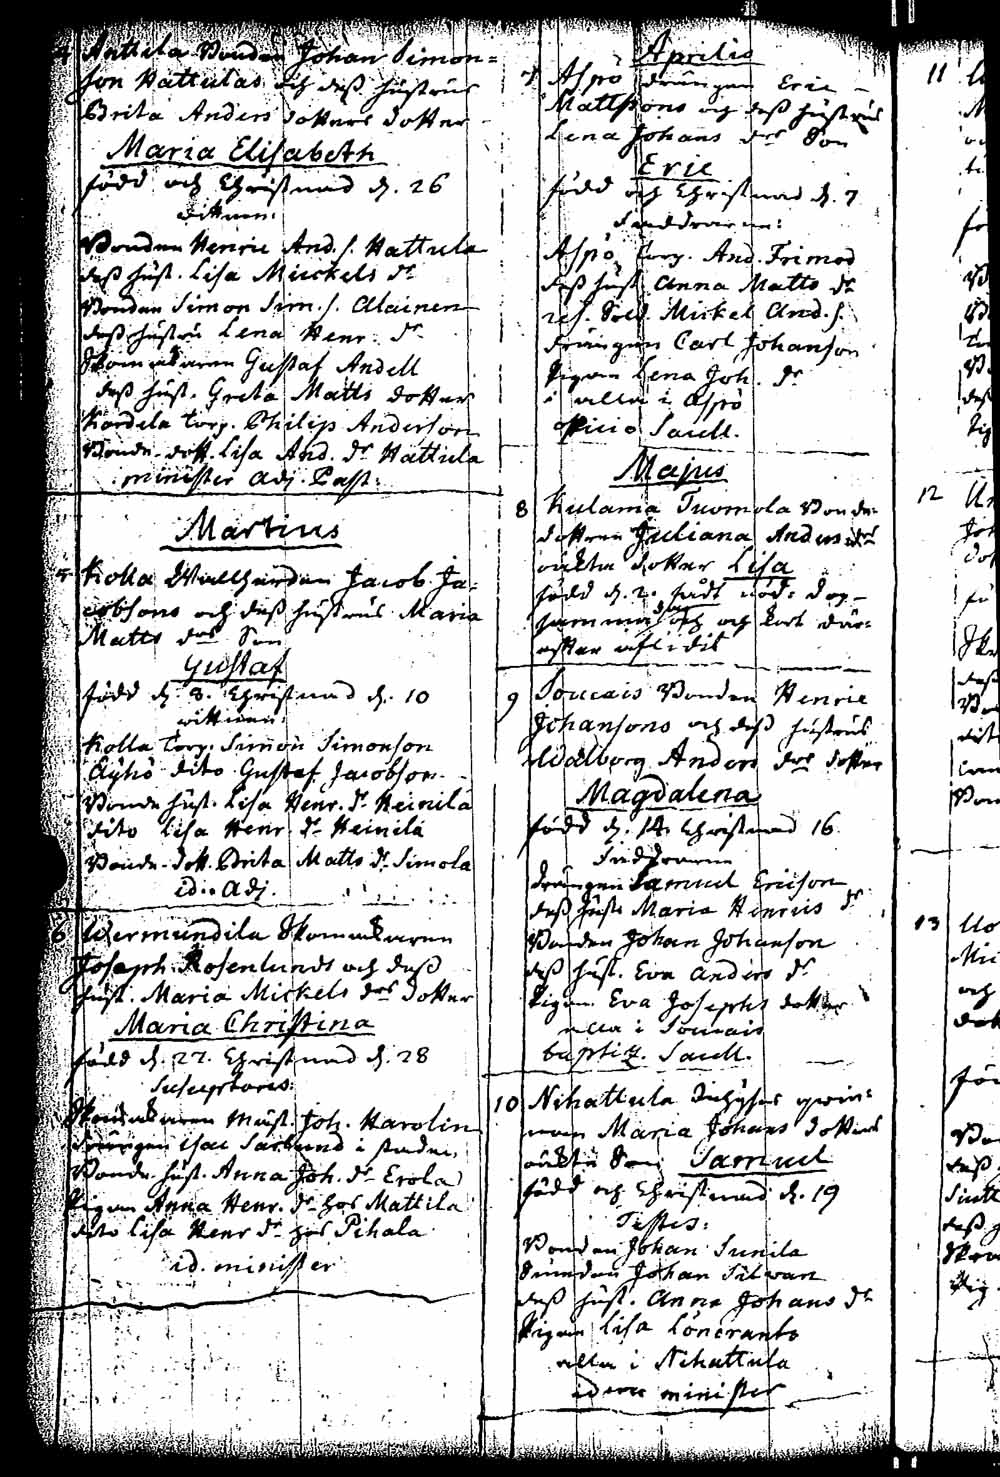 4 Anttila Bonden Johan Simon=
son Hattulas och dess hustrus
Brita Anders dotters dotter
Maria Elisabeth
född och Christnad d. 26
vittnen:
Bonden Henric And. s. Hattula
dess hust. Lisa Muckels dr
Bonden Simon Sim. s. Alainen
dess hustru Lena Henr. dr
Skomakaren Gustaf Andell
dess hust. Greta Matts dotter
Kardela torp. Philip Anderson
Bonde dott. Lisa And. dr Hattula
minister Adj. Past:
Martius
5 Kolla Wallherden Jacob Ja=
cobsons och dess hustrus Maria
Matts drs Son
Gustaf
född d. 8. Christnad d. 10
vittnen:
Kolla torp. Simon Simonson
Äyhö dito Gustaf Jacobson
Bonde hust. Lisa Henr. dr Heinilä
dito Lisa Henr. dr Heinilä
Bonde dott. Brita Matts dr Simola
id. Adj.
6 Wermundila Skomakaren
Joseph Rosenlunds och dess
hust. Maria Mickels drs dotter
Maria Christina
född d. 22. Christnad d. 28
Susceptores:
Skomakaren Mäst. Joh. Karolin
drängen Isac Sarlund i staden
Bonde hust. Anna Joh. dr Erola
Pigan Anna Henr. dr hos Mattila
dito Lisa Henr dr hos Pihala
id. minister
Aprilis
7 Aspö drängen Eric
Mattssons och dess hustrus
Lena Johans drs Son
Eric
född och Christnad d. 7
Faddrarne:
Aspö Torp. And. Frimod
dess hust Anna Matts dr
ref. Sold. Mickel And. s.
drängen Carl Johanson
Pigan Lena Joh. dr
alla i Aspö
Saell.
Majus
8 Kulama Tuomola Bonde=
dottren Juliana Anders drs
oäkta dotter Lisa
född d. 2. fådt nöd= dop
samma dag och kort där=
efter aflidit
9 Soucais Bonden Henric
Johansons och dess hustrus
Walborg Anders drs dotter
Magdalena
född d. 14. Christnad 16
Faddrarne
drängen Samuel Ericson
dess hust. Maria Henrics dr
Bonden Johan Johanson
dess hust. Eva Anders dr
Pigan Eva Josephs dotter
alla i Soucais
baptiz. Saell.
10 Nihattula Inhyses qwin=
nan Maria Johans dotters
oäkta Son Samuel
född och Christnad d. 19
Testes:
Bonden Johan Sunila
Johan Silwan
dess hust. Anna Johans dr
Pigan Lisa Löncrants
alla i Nihattula
idem minister
11
12
13